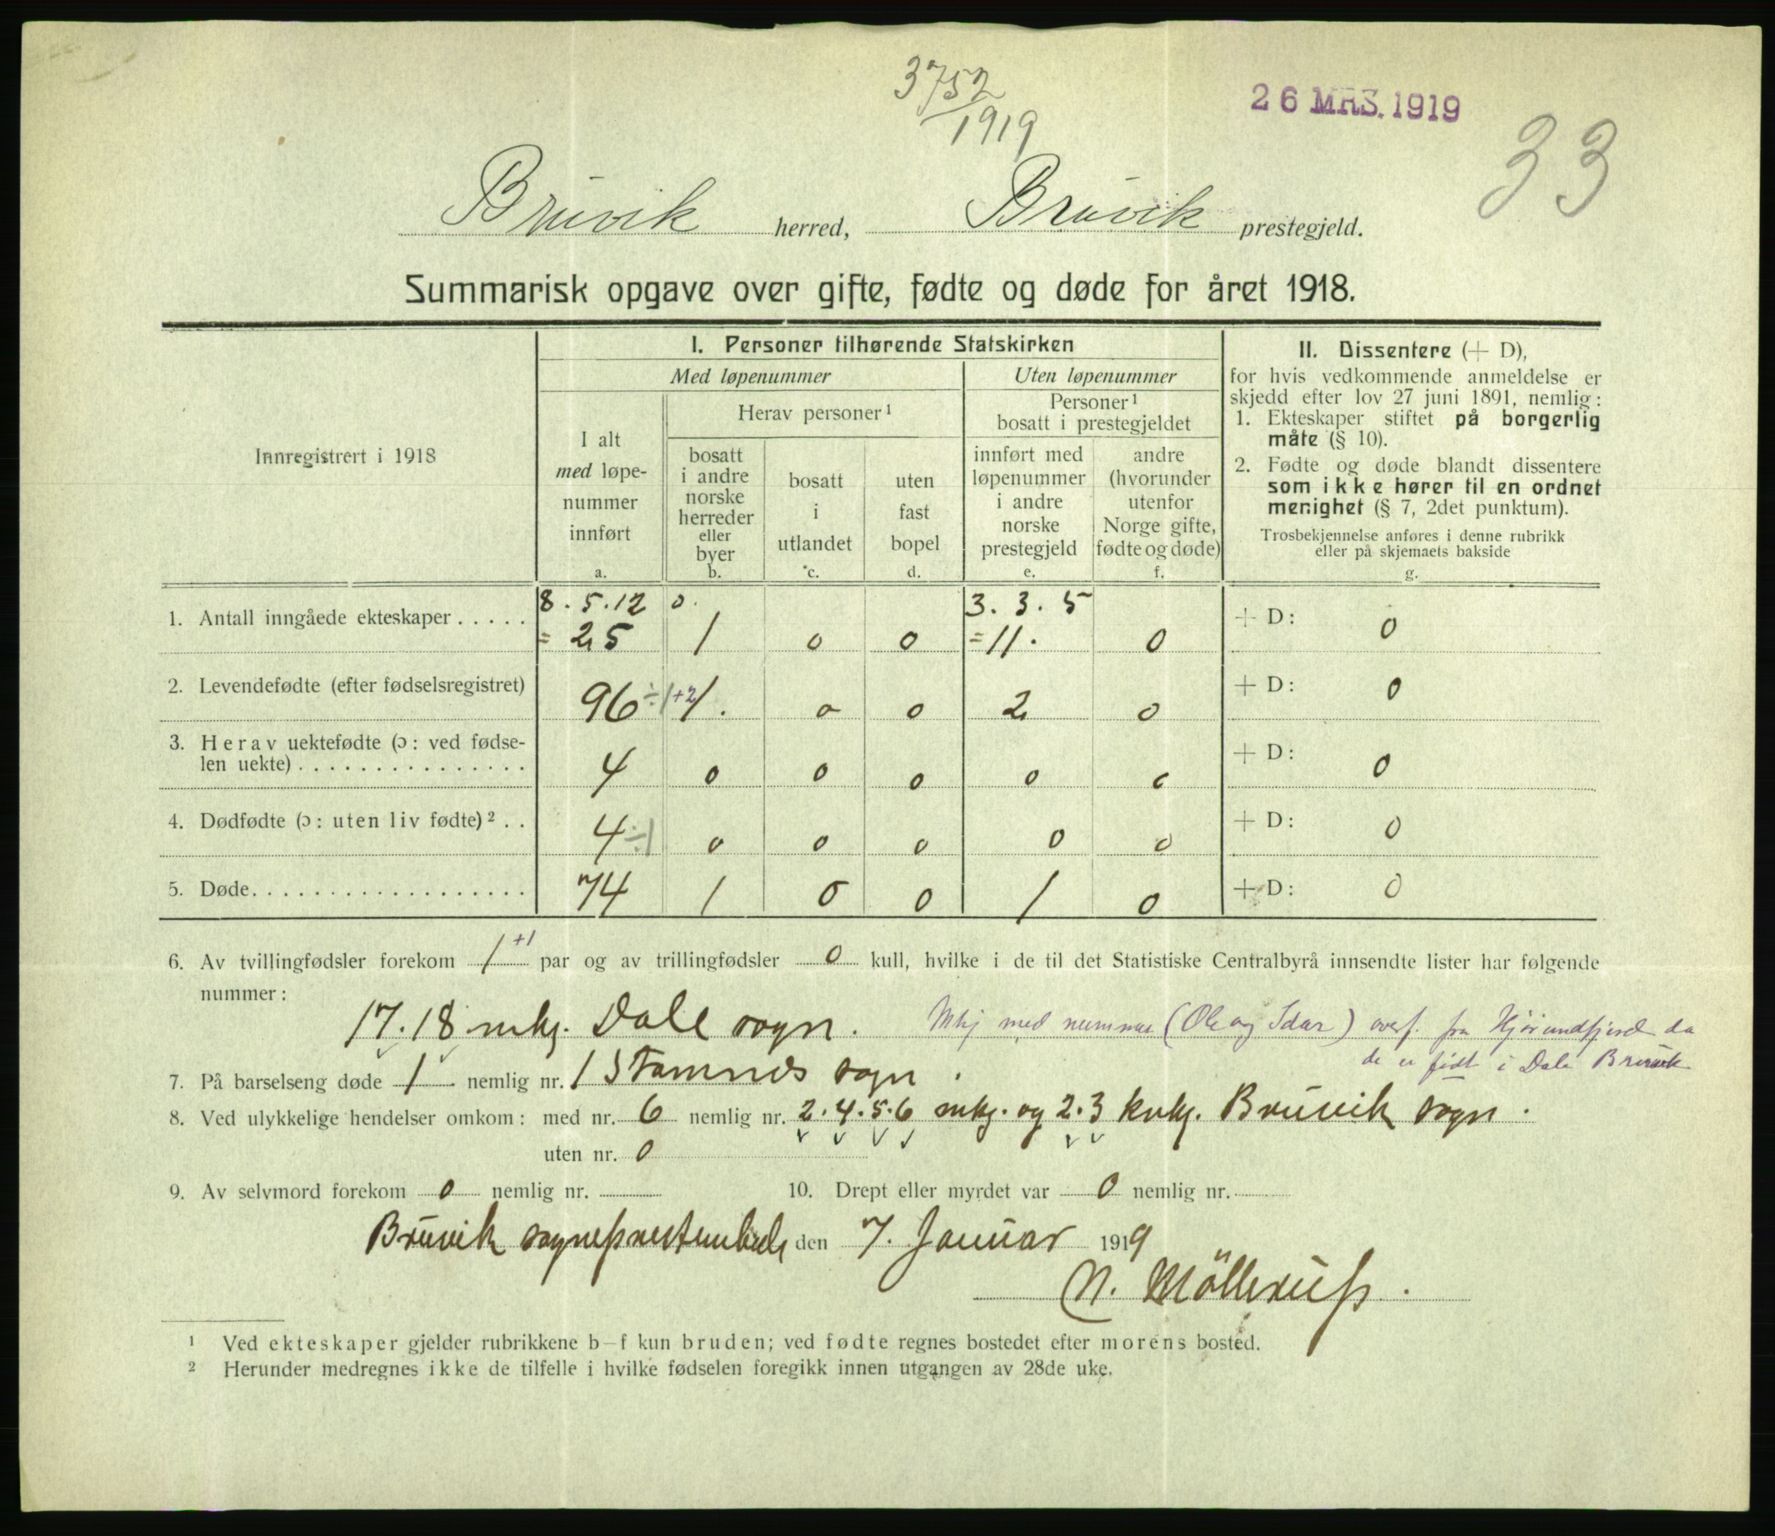 3752
1919
26 MRS. 1919
33
Bruvik herred, Bruvik prestegjeld.
Summarisk opgave over gifte, fødte og døde for året 1918.
Innregistrert i 1918
I. Personer tilhørende Statskirken
Med løpenummer
Uten løpenummer
I alt
med løpe-
nummer
innført
a.
Herav personer¹
bosatt
i andre
norske
herreder
eller
byer
b.
bosatt
i
utlandet
c.
uten
fast
bopel
d.
Personer¹
bosatt i prestegjeldet
innført med
løpenummer
i andre
norske
prestegjeld
e.
andre
(hvorunder
utenfor
Norge gifte,
fødte og døde)
f.
II. Dissentere (+ D),
for hvis vedkommende anmeldelse er
skjedd efter lov 27 juni 1891, nemlig:
1. Ekteskaper stiftet på borgerlig
måte (§ 10).
2. Fødte og døde blandt dissentere
som ikke hører til en ordnet
menighet (§ 7, 2det punktum).
Trosbekjennelse anføres i denne rubrikk
eller på skjemaets bakside
g.
8. 5. 12 0. 3. 3. 5
1. Antall inngåede ekteskaper..... = 25 1 0 0 = 11. 0 + D: 0
2. Levendefødte (efter fødselsregistret) 96 ÷1 +2 1. 0 0 2 0 + D: 0
3. Herav uektefødte (ɔ: ved fødse-
len uekte)............... 4 0 0 0 0 0 + D: 0
4. Dødfødte (ɔ: uten liv fødte)².. 4 ÷1 0 0 0 0 0 + D: 0
5. Døde.................. 74 1 0 0 1 0 + D: 0
6. Av tvillingfødsler forekom 1 +1 par og av trillingfødsler 0 kull, hvilke i de til det Statistiske Centralbyrå innsendte lister har følgende
nummer:
17. 18 mkj. Dale sogn. Mkj med nummer (Ole og Idar) overf. fra Hjørundfjord da
de er født i Dale Bruvik
7. På barselseng døde 1 nemlig nr. 1 Stamnes sogn.
8. Ved ulykkelige hendelser omkom: med nr. 6 nemlig nr. 2. 4. 5. 6 mkj. og 2. 3 kvkj. Bruvik sogn.
uten nr. 0
9. Av selvmord forekom 0 nemlig nr.
10. Drept eller myrdet var 0 nemlig nr.
Bruvik sogneprestembede den 7. Januar 1919
N. Möllerup.
¹ Ved ekteskaper gjelder rubrikkene b–f kun bruden; ved fødte regnes bostedet efter morens bosted.
² Herunder medregnes ikke de tilfelle i hvilke fødselen foregikk innen utgangen av 28de uke.